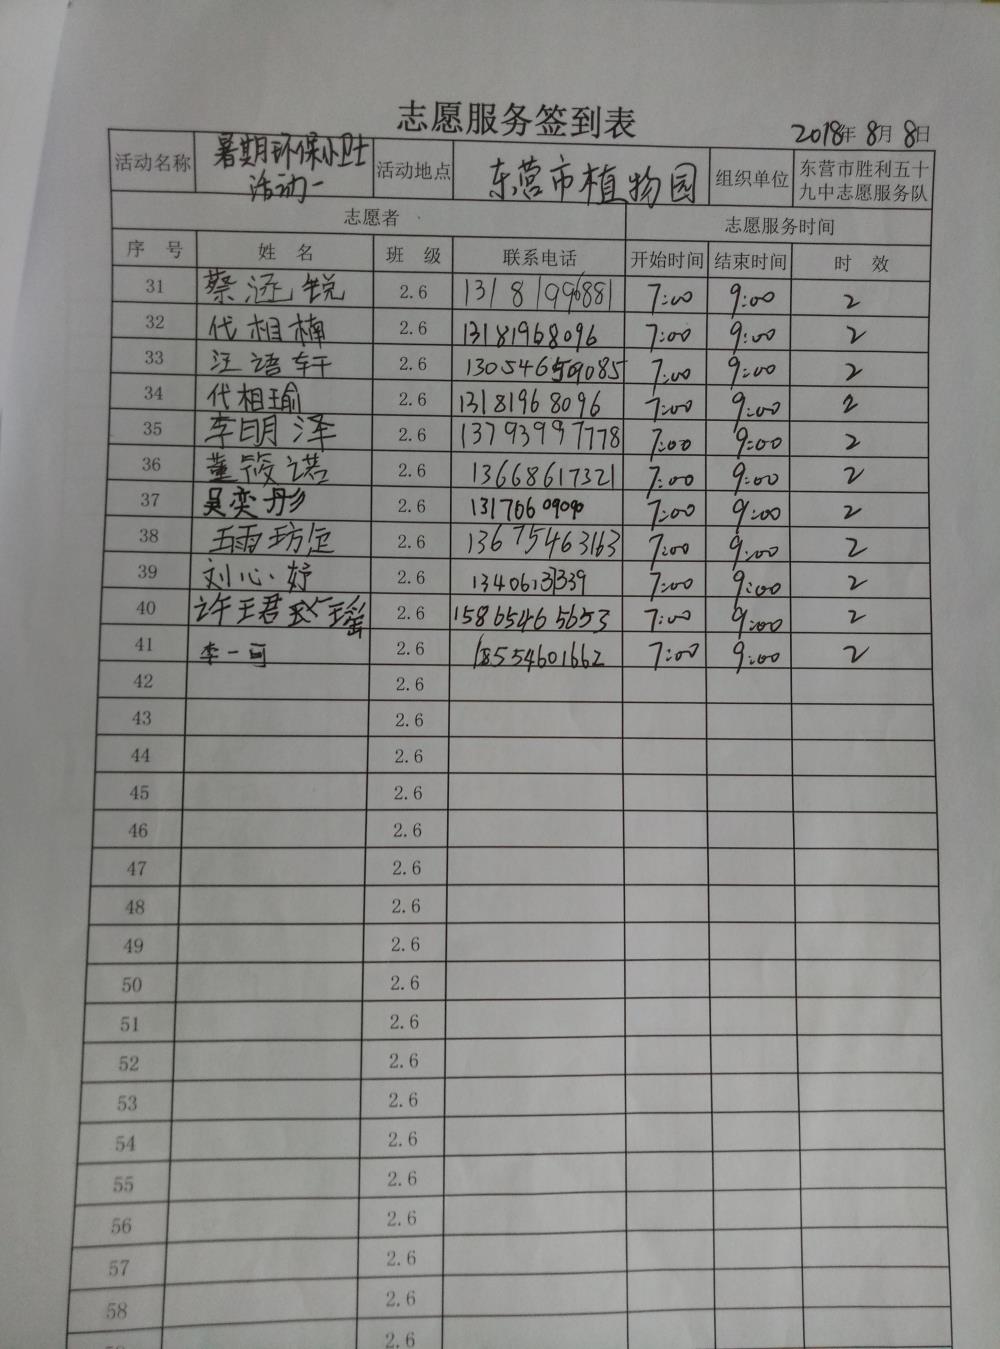 志愿服务签到表
2018年8月8日
活动名称 暑期环保小卫士活动一 活动地点 东营市植物园 组织单位 东营市胜利五十九中志愿服务队
志愿者 志愿服务时间
序 号 姓 名 班 级 联系电话 开始时间 结束时间 时 效
31 蔡涵锐 2.6 13181996881 7:00 9:00 2
32 代相楠 2.6 13181968096 7:00 9:00 2
33 汪语轩 2.6 13054659085 7:00 9:00 2
34 代相瑜 2.6 13181968096 7:00 9:00 2
35 李明泽 2.6 13793997778 7:00 9:00 2
36 董筱诺 2.6 13668617321 7:00 9:00 2
37 吴奕彤 2.6 7:00 9:00 2
38 2.6 13675463163 7:00 9:00 2
39 刘心妤 2.6 7:00 9:00 2
40 许王君 瑶 2.6 15865465653 7:00 9:00 2
41 李一可 2.6 18554601662 7:00 9:00 2
42 2.6
43 2.6
44 2.6
45 2.6
46 2.6
47 2.6
48 2.6
49 2.6
50 2.6
51 2.6
52 2.6
53 2.6
54 2.6
55 2.6
56 2.6
57 2.6
58 2.6
2.6